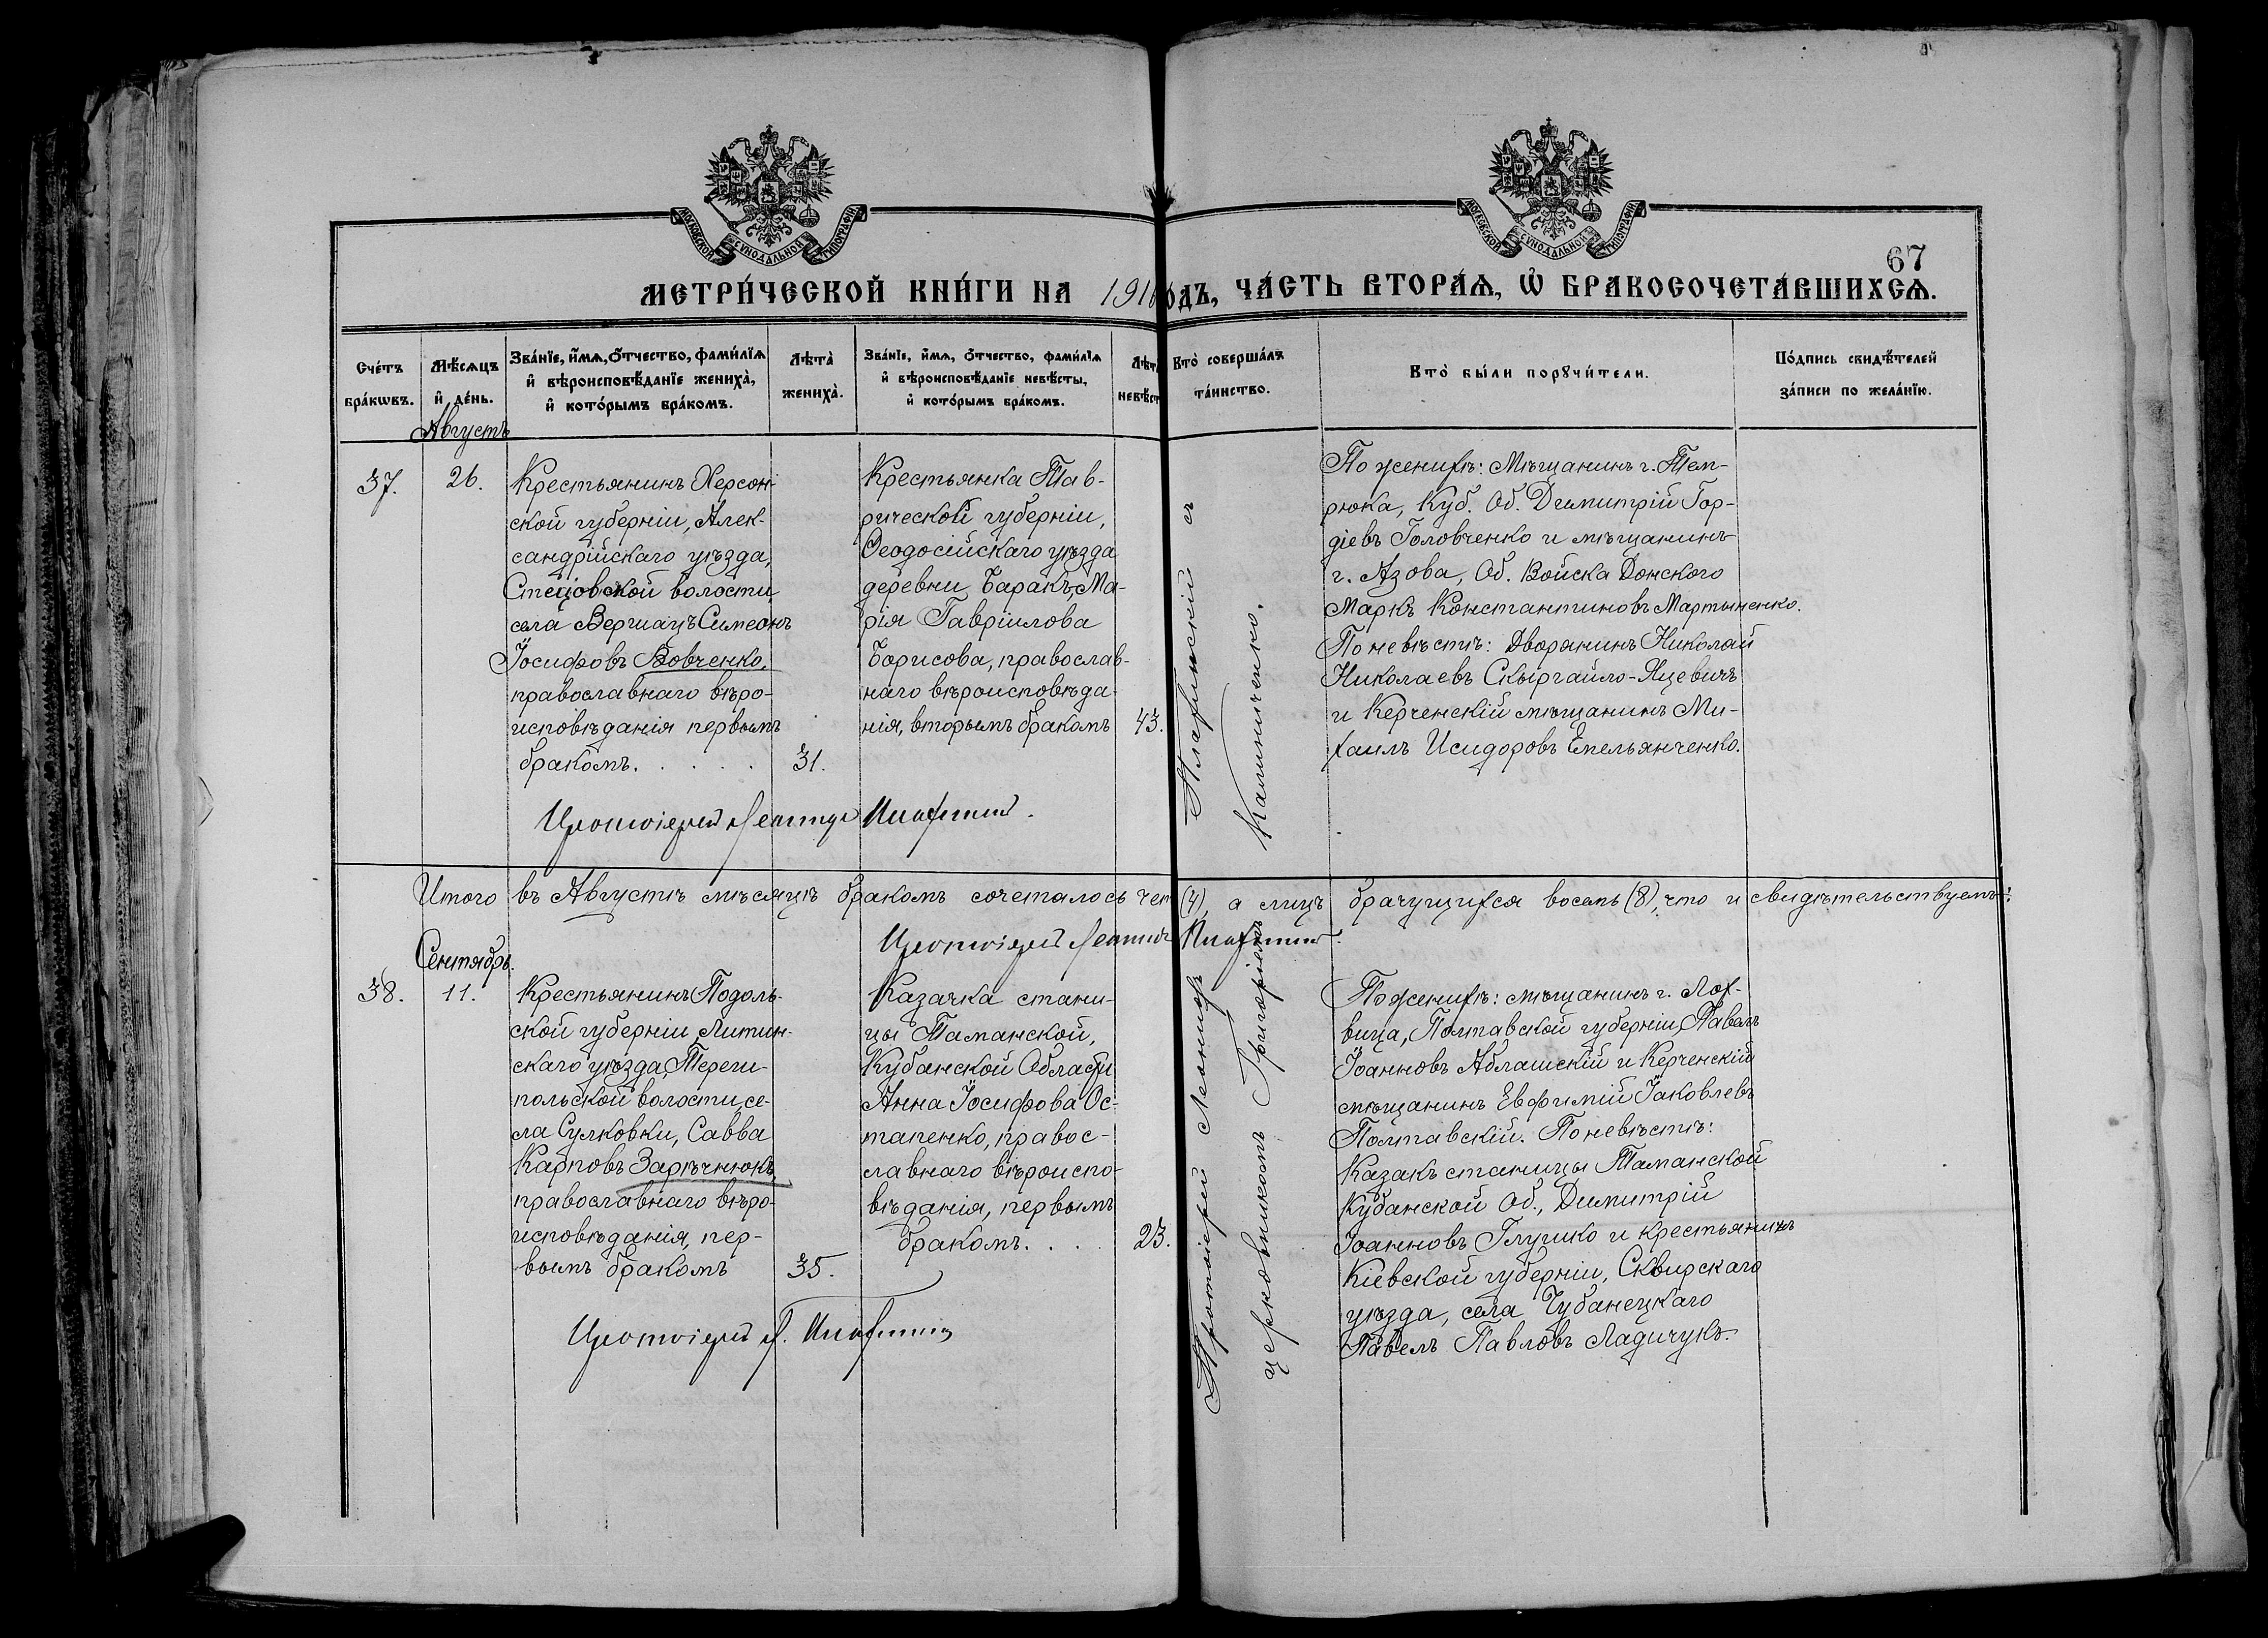 МОСКОВСКОЙ СѴНОДАЛЬНОЙ ТИПОГРАФІИ
МОСКОВСКОЙ СѴНОДАЛЬНОЙ ТИПОГРАФІИ
67
МЕТРИ́ЧЕСКОЙ КНИ́ГИ НА 191 ОДЪ, ЧА́СТЬ ВТОРА́Ѧ, Ѡ БРАКОСОЧЕТА́ВШИХСѦ.
Сче́тъ бра́кѡвъ.
Мѣ́сѧцъ и де́нь.
Зва́нїе, и́мѧ, о́тчество, фами́лїѧ
и вѣроисповѣ́данїе жениха̀,
и кото́рымъ бра́комъ.
Лѣта̀ жениха̀.
Зва́нїе, и́мѧ, о́тчество, фами́лїѧ
и вѣроисповѣ́данїе невѣ́сты,
и кото́рымъ бра́комъ.
Лѣт
невѣст
Кто̀ соверша́лъ
та́инство.
Кто̀ бы́ли порꙋчи́тели.
По́дпись свидѣ́телей
за́писи по жела́нїю.
Августъ
37.
26.
Крестьянинъ Херсон-
ской губерніи, Алек-
сандрійскаго уѣзда,
Стецовской волости
села Вершацъ Симеонъ
Іосифовъ Вовченко,
православнаго вѣро-
исповѣданія первымъ
бракомъ. . . . .
31.
Крестьянка Тав-
рической губерніи,
Ѳеодосійскаго уѣзда
деревни Баракъ, Ма-
рія Гавріилова
Борисова, православ-
наго вѣроисповѣда-
нія, вторымъ бракомъ
43.
По женихѣ: Мѣщанинъ г. Тем-
рюка, Куб. Об. Димитрій Гор-
діевъ Головченко и мѣщанинъ
г. Азова, Об. Войска Донского
Маркъ Константиновъ Мартыненко.
По невѣстѣ: Дворянинъ Николай
Николаевъ Скыргайло-Яцевичъ
и Керченскій мѣщанинъ Ми-
хаилъ Исидоровъ Емельянченко.
Протоіерей Леонидъ
Итого въ Августѣ мѣсяцѣ бракомъ сочеталось чет (4), а лицъ брачущихся восемь (8), что и свидѣтельствуемъ:
Протоіерей Леонидъ
Протоіерей Леонидъ съ
церковникомъ Григоріемъ Калиниченко.
Сентябрь.
38.
11.
Крестьянинъ Подоль-
ской губерніи, Литин-
скаго уѣзда, Тереш-
польской волости, се-
ла Сулковки, Савва
Карповъ Зарѣчнюкъ
православнаго вѣро-
исповѣданія, пер-
вымъ бракомъ
35.
Казачка стани-
цы Таманской,
Кубанской Области
Анна Іосифова Ос-
тапенко, правос-
лавнаго вѣроиспо-
вѣданія, первымъ
бракомъ. . . .
23.
По женихѣ: мѣщанинъ г. Лох-
вица, Полтавской губерніи, Павелъ
Іоанновъ Аблашскій и Керченскій
мѣщанинъ Евфимій Іаковлевъ
Полтавскій. По невѣстѣ:
Казакъ станицы Таманской
Кубанской Об., Димитрій
Іоанновъ Глушко и крестьянинъ
Кіевской губерніи, Сквирскаго
уѣзда, села Чубанецкаго
Павелъ Павловъ Ладичукъ.
Протоіерей Л.